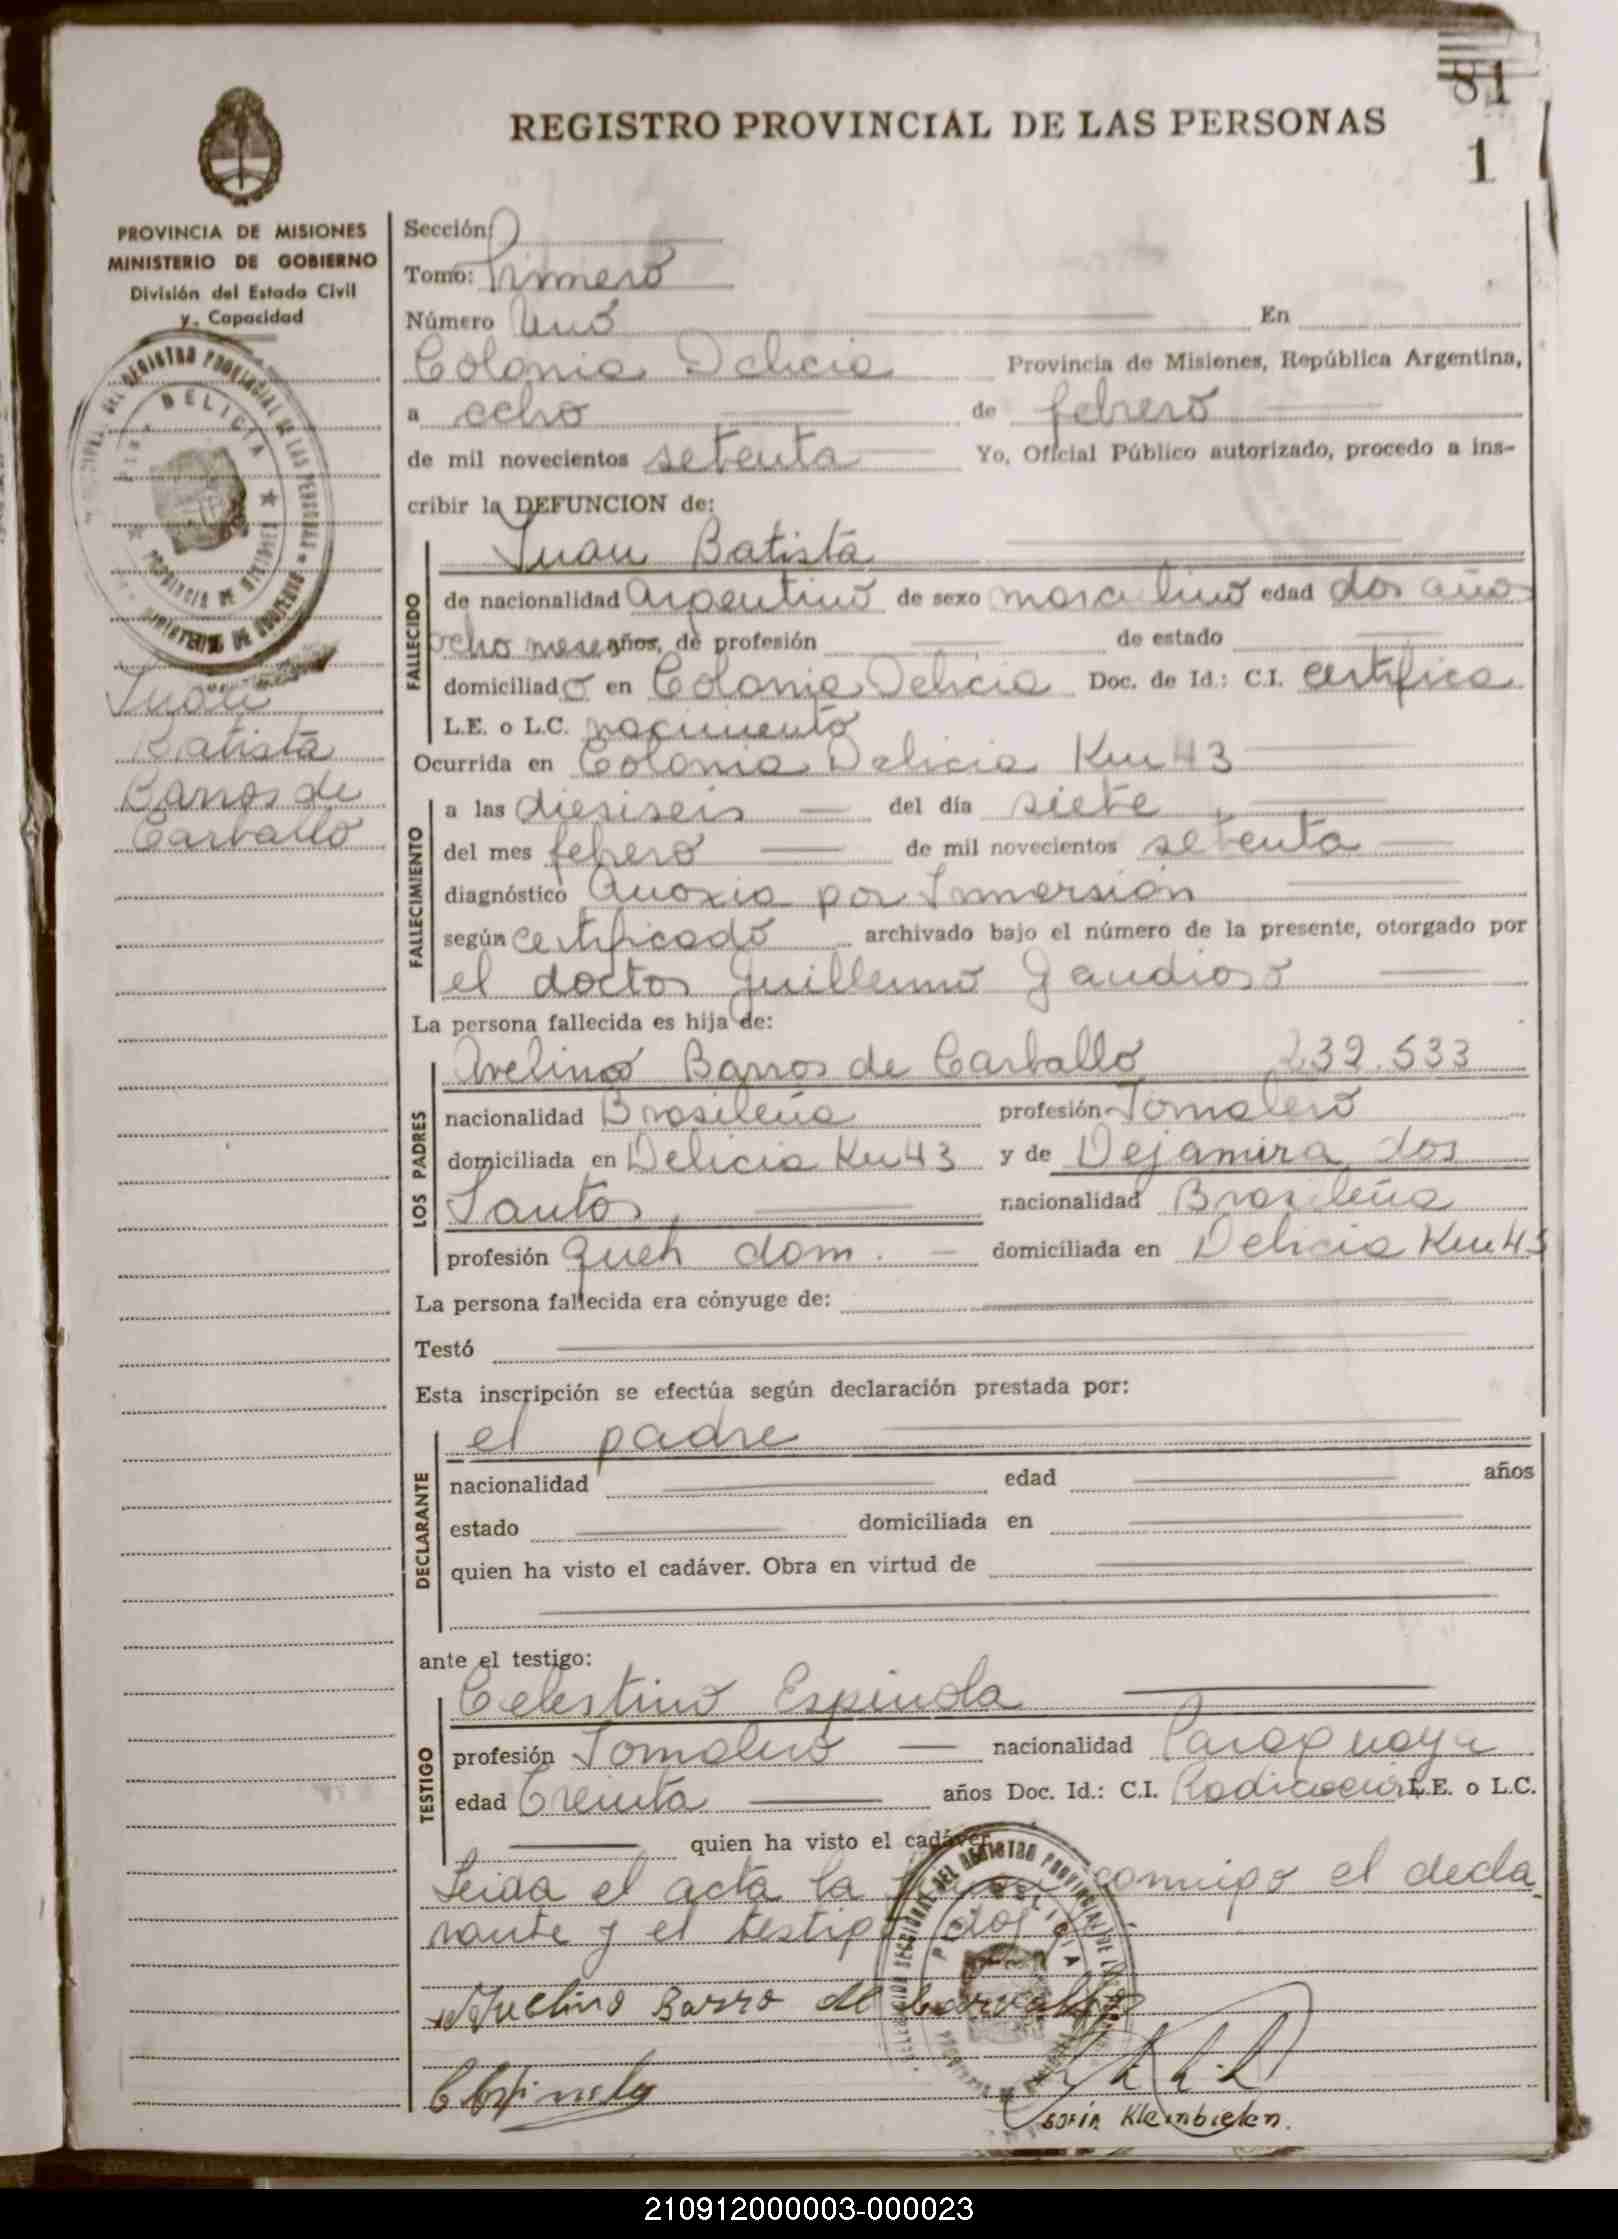 81
REGISTRO PROVINCIAL DE LAS PERSONAS
1
PROVINCIA DE MISIONES
MINISTERIO DE GOBIERNO
División del Estado Civil
y Capacidad
DEL REGISTRO PROVINCIAL DE LAS PERSONAS
DELICIA
PROVINCIA DE MISIONES
MINISTERIO DE GOBIERNO
Juan
Batista
Barros de
Carballo
Sección:
Tomo: Primero
Número Uno En
Colonia Delicia Provincia de Misiones, República Argentina,
a ocho de febrero
de mil novecientos setenta Yo, Oficial Público autorizado, procedo a ins-
cribir la DEFUNCION de:
Juan Batista
FALLECIDO
de nacionalidad Argentino de sexo masculino edad dos años
ocho meses años, de profesión de estado
domiciliado en Colonia Delicia Doc. de Id.: C.I. certifica
L.E. o L.C. nacimiento
Ocurrida en Colonia Delicia Km 43
FALLECIMIENTO
a las dieciseis del día siete
del mes febrero de mil novecientos setenta
diagnóstico Anoxia por Inmersión
según certificado archivado bajo el número de la presente, otorgado por
el doctor Guillermo Gaudioso
La persona fallecida es hija de:
LOS PADRES
Avelino Barros de Carballo 239.533
nacionalidad Brasileña profesión Jornalero
domiciliada en Delicia Km 43 y de Dejamira dos
Santos nacionalidad Brasileña
profesión queh dom. domiciliada en Delicia Km 43
La persona fallecida era cónyuge de:
Testó
Esta inscripción se efectúa según declaración prestada por:
DECLARANTE
el padre
nacionalidad edad años
estado domiciliada en
quien ha visto el cadáver. Obra en virtud de
ante el testigo:
TESTIGO
Celestino Espinola
profesión Jornalero nacionalidad Paraguaya
edad Treinta años Doc. Id.: C.I. Radicación L.E. o L.C.
quien ha visto el cadáver
Leida el acta la conmigo el decla
rante y el testigo
Avelino Barro de Carvallo
CEspinola
Sofía Kleinbielen.
210912000003-000023